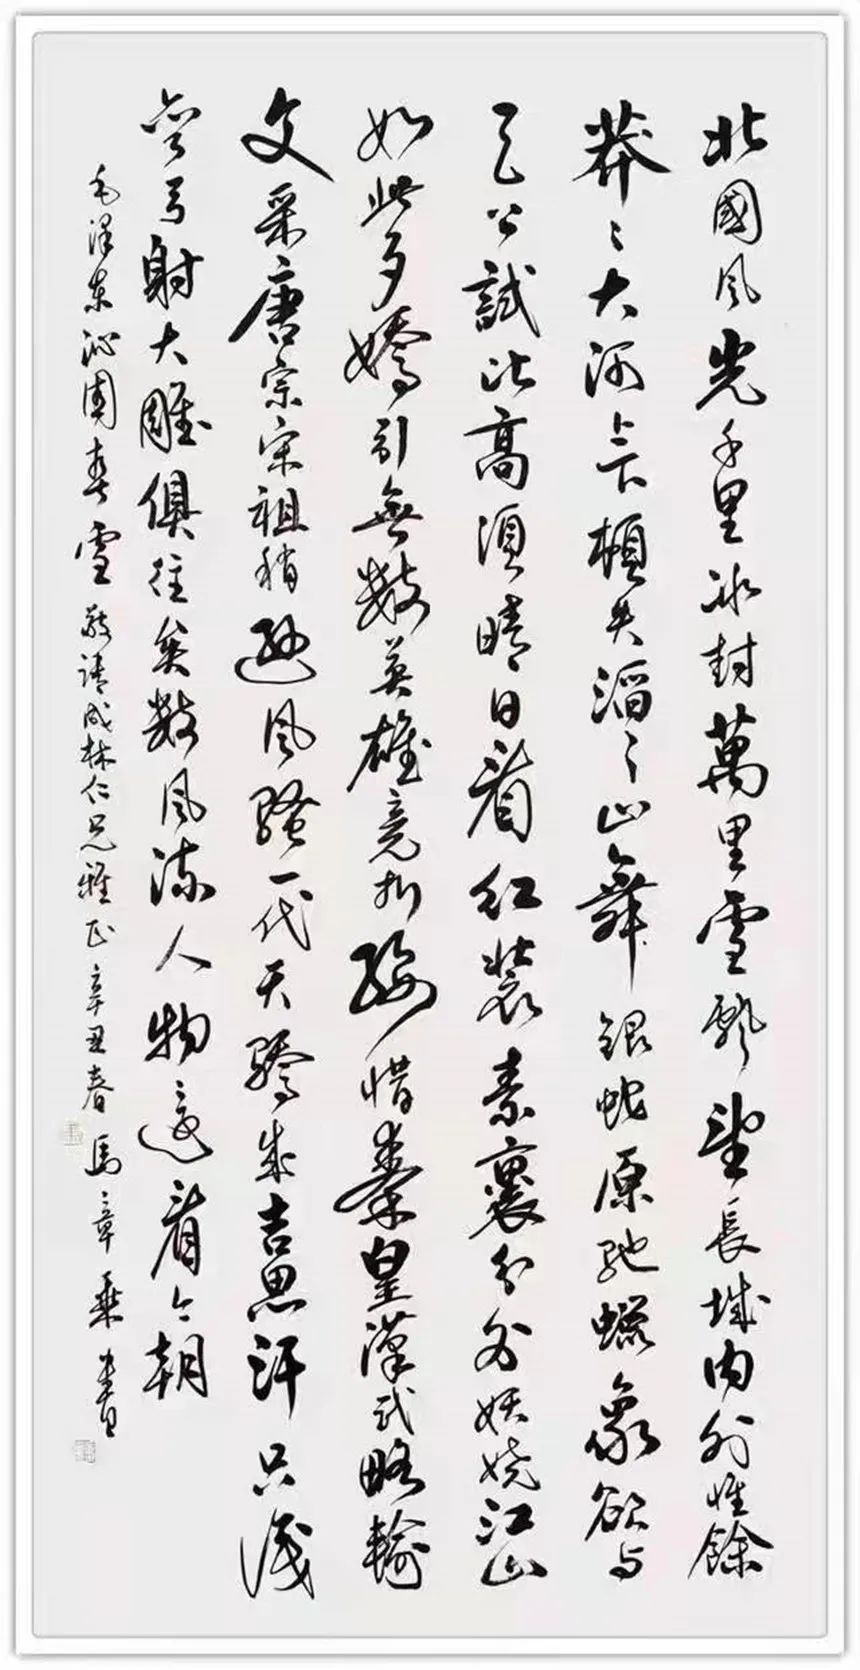 北國風光千里冰封萬里雪飄望長城內外惟餘
莽々大河上下頓失滔々山舞銀蛇原馳蠟象欲与
天公試比高須晴日看紅裝素裹分外妖嬈江山
如此多嬌引無數英雄竞折腰惜秦皇漢武略輸
文采唐宗宋祖稍遜風騷一代天驕成吉思汗只識
彎弓射大雕俱往矣數風流人物還看今朝
毛澤東沁園春雪 敬請成林仁兄雅正 辛丑春 馬章乘書